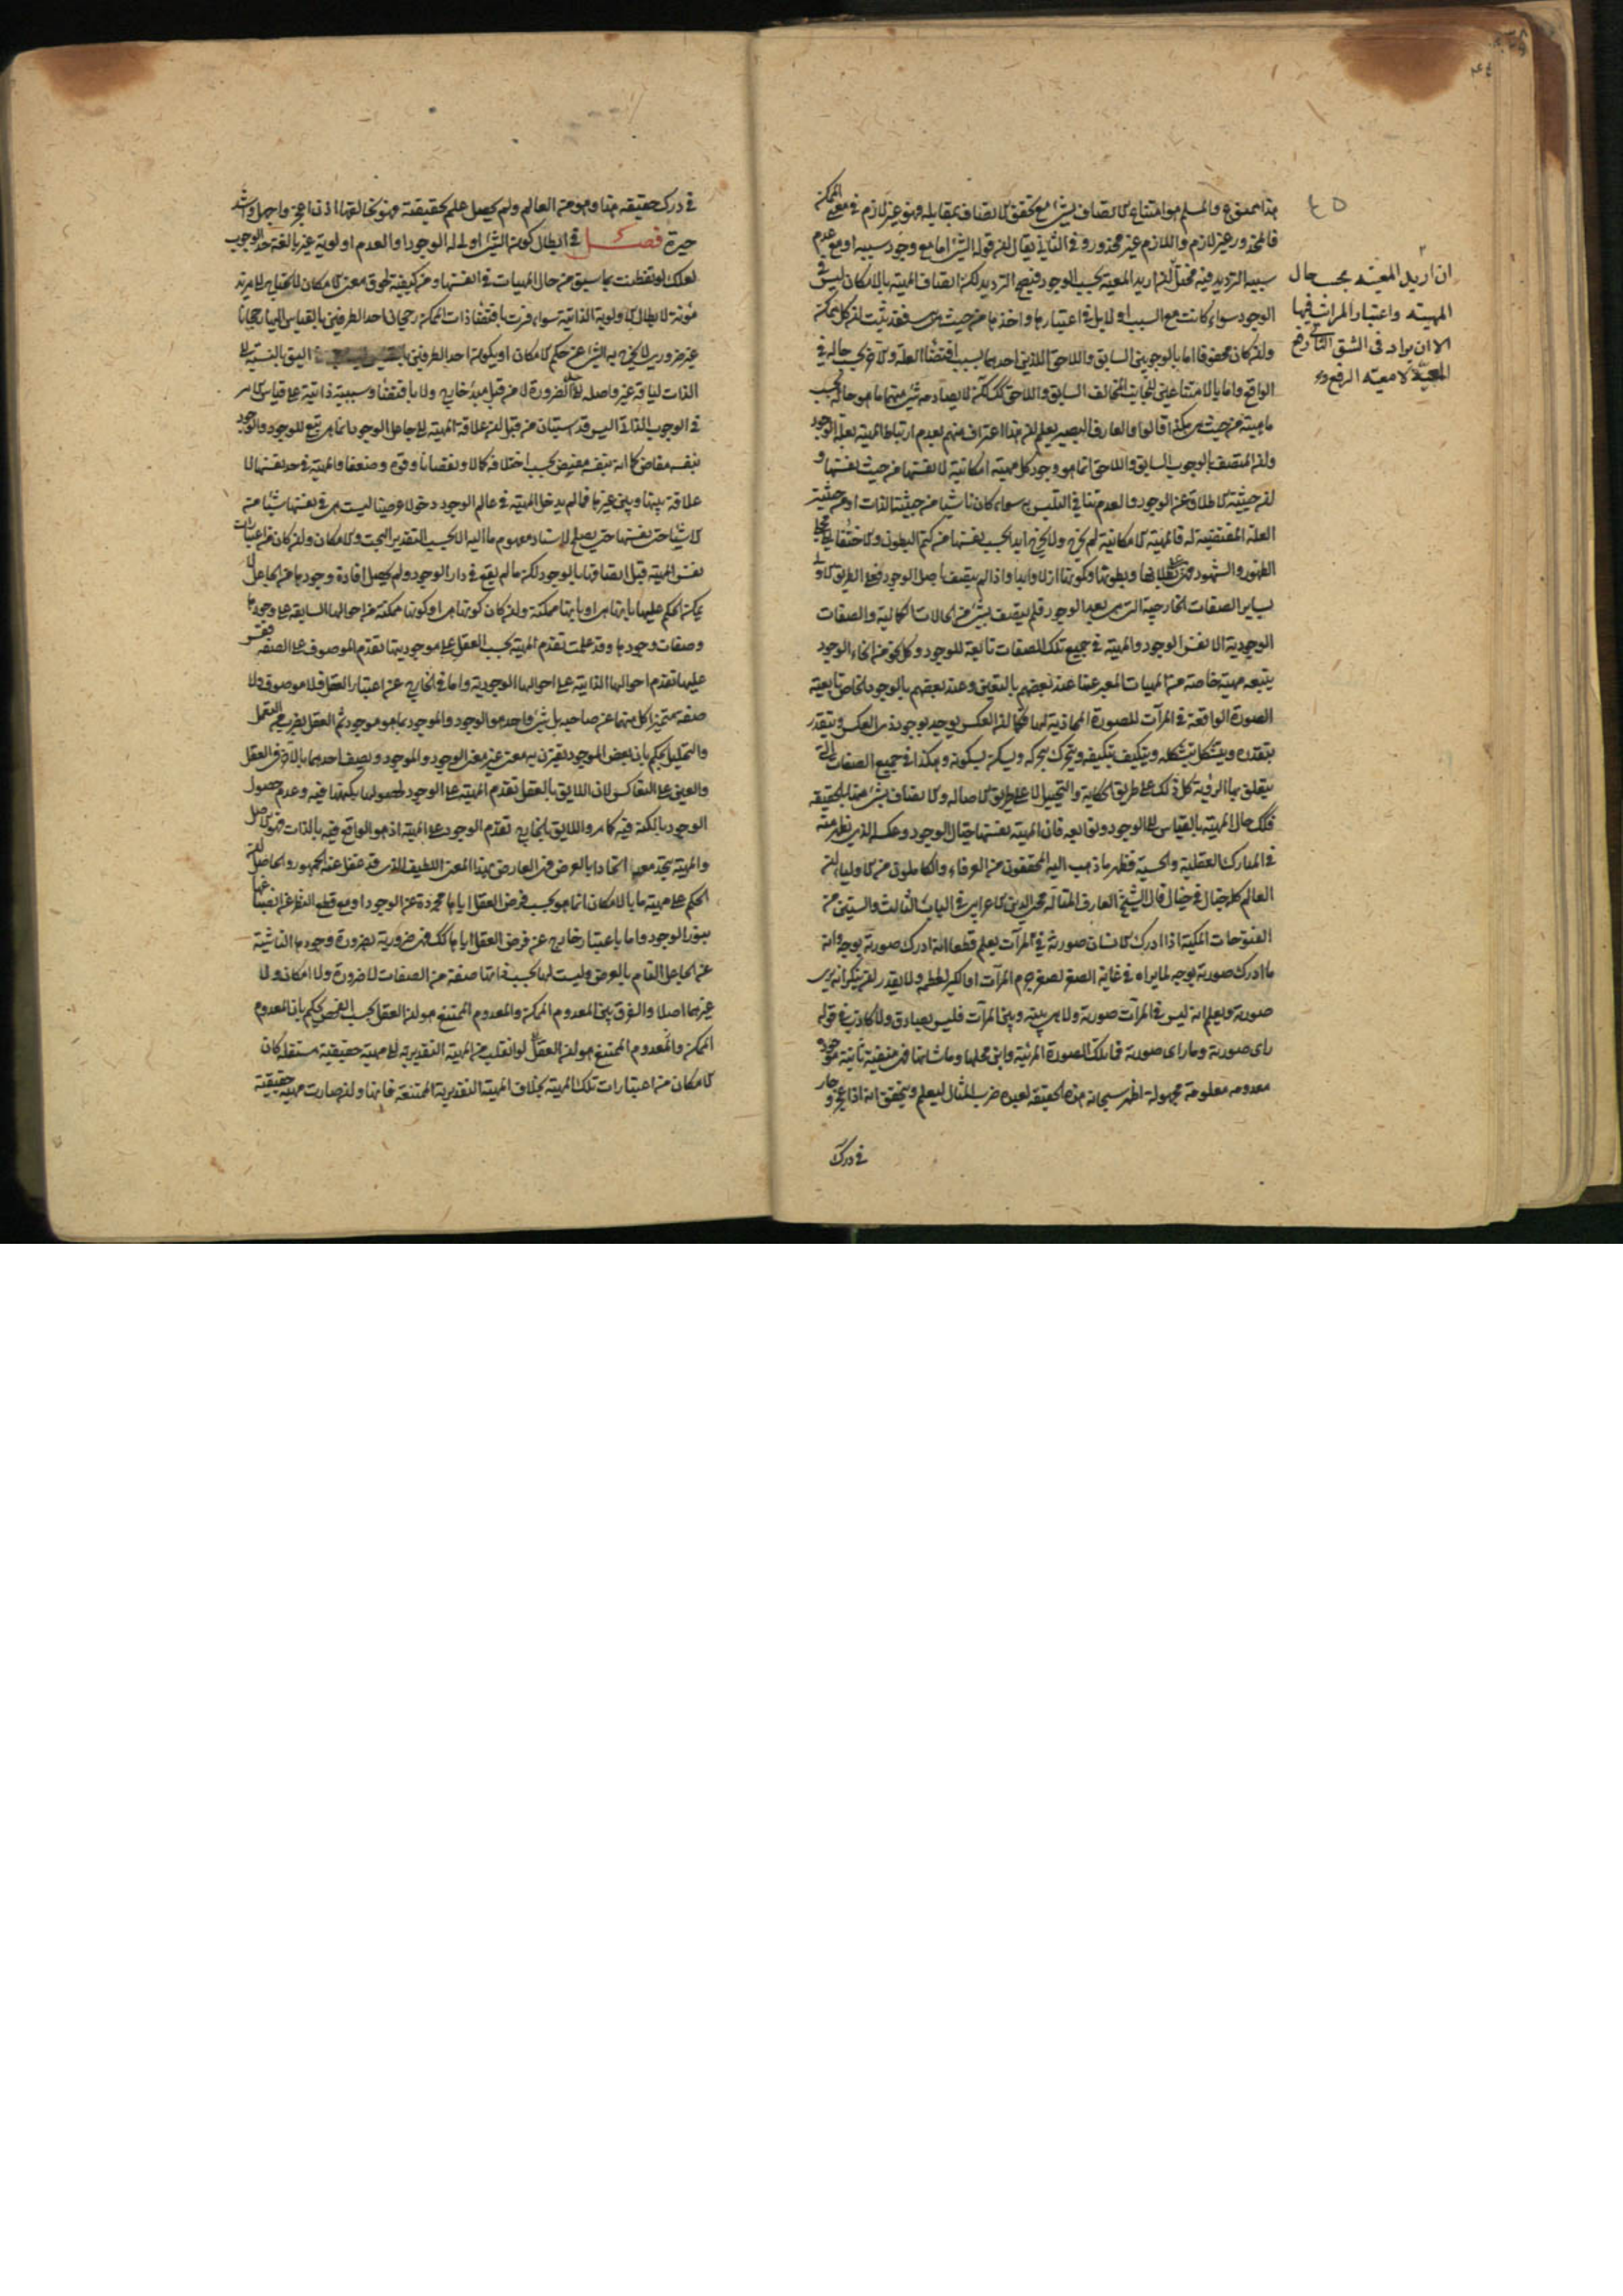 هذا ممنوع والمسلم هو امتناع الاتصاف بشئ مع تحقق الاتصاف بمقابله وهو غير لازم في معنى الممكن
فالمحذور غير لازم واللازم غير محذور وفي الثاني يقال ان قوله الشئ اما مع وجود سببه او مع عدم
سببه الترديد فيه مختل لان اريد المعية بحسب الوجود فنصح الترديد لكن اتصاف المهية بالامكان ليس في
الوجود سواء كانت مع السبب او لا بل في اعتبارها واخذها من حيث هي هي فقد ثبت ان كل ممكن
وان كان محفوفا اما بالوجوبين السابق واللاحق اللذين احدهما بسبب اقتضاء العلة والاخر بحسب حاله في
الواقع واما بالامتناعين لكن لا يصادم شئ منهما ما هو حاله بحسب
مهية من حيث هي هكذا قالوا والعارف البصير يعلم ان هذا اعتراف منهم بعدم ارتباط المهية بعلة الوجود
وان المتصف بالوجوب السابق واللاحق انما هو وجود كل مهية امكانية لا نفسها من حيث نفسها و
ان حيثية الاطلاق عن الوجود والعدم ينافي التلبس به سواء كان ناشيا من حيثية الذات او من حيثية
العلة المقتضية له فالمهية الامكانية لم يخرج ولا يخرج ابدا بحسب نفسها من كتم البطون والاختفاء الى مجلى
الظهور والشهود فهي على بطلانها وبطونها وكمونها ازلا وابدا واذا لم يتصف باصل الوجود فعلى الطريق الاولى
بساير الصفات الخارجية التي هي بعد الوجود فلم يتصف بشئ من الحالات الكمالية والصفات
الوجودية الا نفس الوجود والمهية في جميع تلك الصفات تابعة للوجود وكل نحو من انحاء الوجود
يتبعه مهية خاصة من المهيات المعبر عنها عند بعضهم بالتعين وعند بعضهم بالوجود الخاص تابعية
الصورة الواقعة في المرآت للصورة المحاذية لها فكما ان العكس يوجد بوجود ذي العكس ويتقدر
بتقدره ويتشكل بتشكله ويتكيف بتكيفه ويتحرك بتحركه ويسكن بسكونه وهكذا في جميع الصفات التي
يتعلق بها الرؤية كل ذلك على طريق الحكاية والتخييل لا على طريق الاصالة والاتصاف بشئ منها بالحقيقة
فكذلك حال المهية بالقياس الى الوجود وتوابعه فان المهية نفسها خيال الوجود وعكسه الذي يظهر منه
في المدارك العقلية والحسية فظهر ما ذهب اليه المحققون من العرفاء والكاملون من الاولياء ان
العالم كله خيال في خيال قال الشيخ العارف المتأله محي الدين الاعرابي في الباب الثالث والستين من
الفتوحات المكية اذا ادرك الانسان صورته في المرآت يعلم قطعا انه ادرك صورته بوجه وانه
ما ادرك صورته بوجه لما يراه في غاية الصغر لصغر جرم المرآت او الكبر لعظمه ولا يقدر ان ينكر انه يرى
صورته ويعلم انه ليس في المرآت صورته ولا هي بينه وبين المرآت فليس بصادق ولا كاذب في قوله
راى صورته وما راى صورته فما تلك الصورة المرئية واين محلها وما شانها فهي منفية ثابتة موجودة
معدومة معلومة مجهولة اظهر سبحانه هذه الحقيقة لعبده ضرب المثال ليعلم ويتحقق انه اذا عجز وحار
في درك
٤٥
ان اريد المعية بحسب حال
المهية واعتبار المراتب فيها
الا ان يراد في الشق الثاني رفع
المعية لا معية الرفع
في درك حقيقة هذا وهو من العالم ولم يحصل علم بحقيقته فهو بخالقها اذن اعجز واجهل واشد
حيرة فصل في ابطال كون الشئ اولى له الوجود او العدم اولوية غير بالغة حد الوجوب
لعلك لو تفطنت بما سبق من حال المهيات في انفسها ومن كيفية لحوق معنى الامكان لها لا يحتاج الى مزيد
مؤنة لابطال الاولوية الذاتية سواء فسرت باقتضاء ذات الممكن رجحان احد الطرفين بالقياس اليها رجحانا
غير ضروري لا يخرج به الشئ عن حكم الامكان او بكون احد الطرفين اليق بالنسبة الى
الذات لياقة غير واصلة الى حد الضرورة لا من قبل مبدء خارج ولا باقتضاء وسببية ذاتية على قياس الامر
في الوجوب الذاتي اليس قد استبان من قبل ان علاقة المهية الى جاعل الوجود انما هي تبع للوجود والوجود
بنفسه مفاض كما انه بنفسه مفيض بحسب اختلافه كمالا ونقصانا وقوة وضعفا والمهية في حد نفسها لا
علاقة بينها وبين غيرها فما لم يدخل المهية في عالم الوجود دخولا عرضيا ليست هي في نفسها شيئا من
الاشياء حتى نفسها حتى يصلح لاسناد مفهوم ما اليه الا بحسب التقدير البحت والامكان وان كان من اعتبارات
نفس المهية قبل اتصافها بالوجود لكن ما لم يقع في دار الوجود ولم يحصل افادة وجودها من الجاعل لا
يمكن الحكم عليها بانها هي او بانها ممكنة وان كان كونها هي او كونها ممكنة من احوالها السابقة على وجودها
وصفات وجودها وقد علمت تقدم المهية بحسب العقل على موجوديتها تقدم الموصوف على الصفة
عليها تقدم احوالها الذاتية على احوالها الوجودية واما في الخارج عن اعتبار العقل فلا موصوف ولا
صفة متميزا كل منهما عن صاحبه بل شئ واحد هو الوجود والموجود بما هو موجود ثم العقل بضرب من التعمل
والتحليل يحكم بان بعض الموجود يقترن به معنى غير معنى الوجود والموجود ويصف احدهما بالاخر في العقل
والعين على التعاكس لان اللايق بالعقل تقدم المهية على الوجود لحصولها بكنهها فيه وعدم حصول
الوجود بالكنه فيه كما مر واللايق بالخارج تقدم الوجود على المهية اذ هو الواقع فيه بالذات فهو الاصل
والمهية يتحد معه اتحادا بالعرض فهي العارض بهذا المعنى اللطيف الذي قد غفل عنه الجمهور والحاصل ان
الحكم على مهية ما بالامكان انما هو بحسب فرض العقل اياها مجردة عن الوجود او مع قطع النظر عن انصباغها
بنور الوجود واما باعتبار خارج عن فرض العقل اياها كذلك فهي ضرورية بضرورة وجودها الناشية
عن الجاعل التام بالعرض وليست لها بحسب ذاتها صفة من الصفات لا ضرورة ولا امكان ولا
غيرهما اصلا والفرق بين المعدوم الممكن والمعدوم الممتنع هو ان العقل بحسب الفحص يحكم بان المعدوم
الممكن والمعدوم الممتنع هو ان العقل لو انقلب من المهية التقديرية الى مهية حقيقية مستقلة كان
الامكان من اعتبارات تلك المهية بخلاف المهية التقديرية الممتنعة فانها وان صارت مهية حقيقية